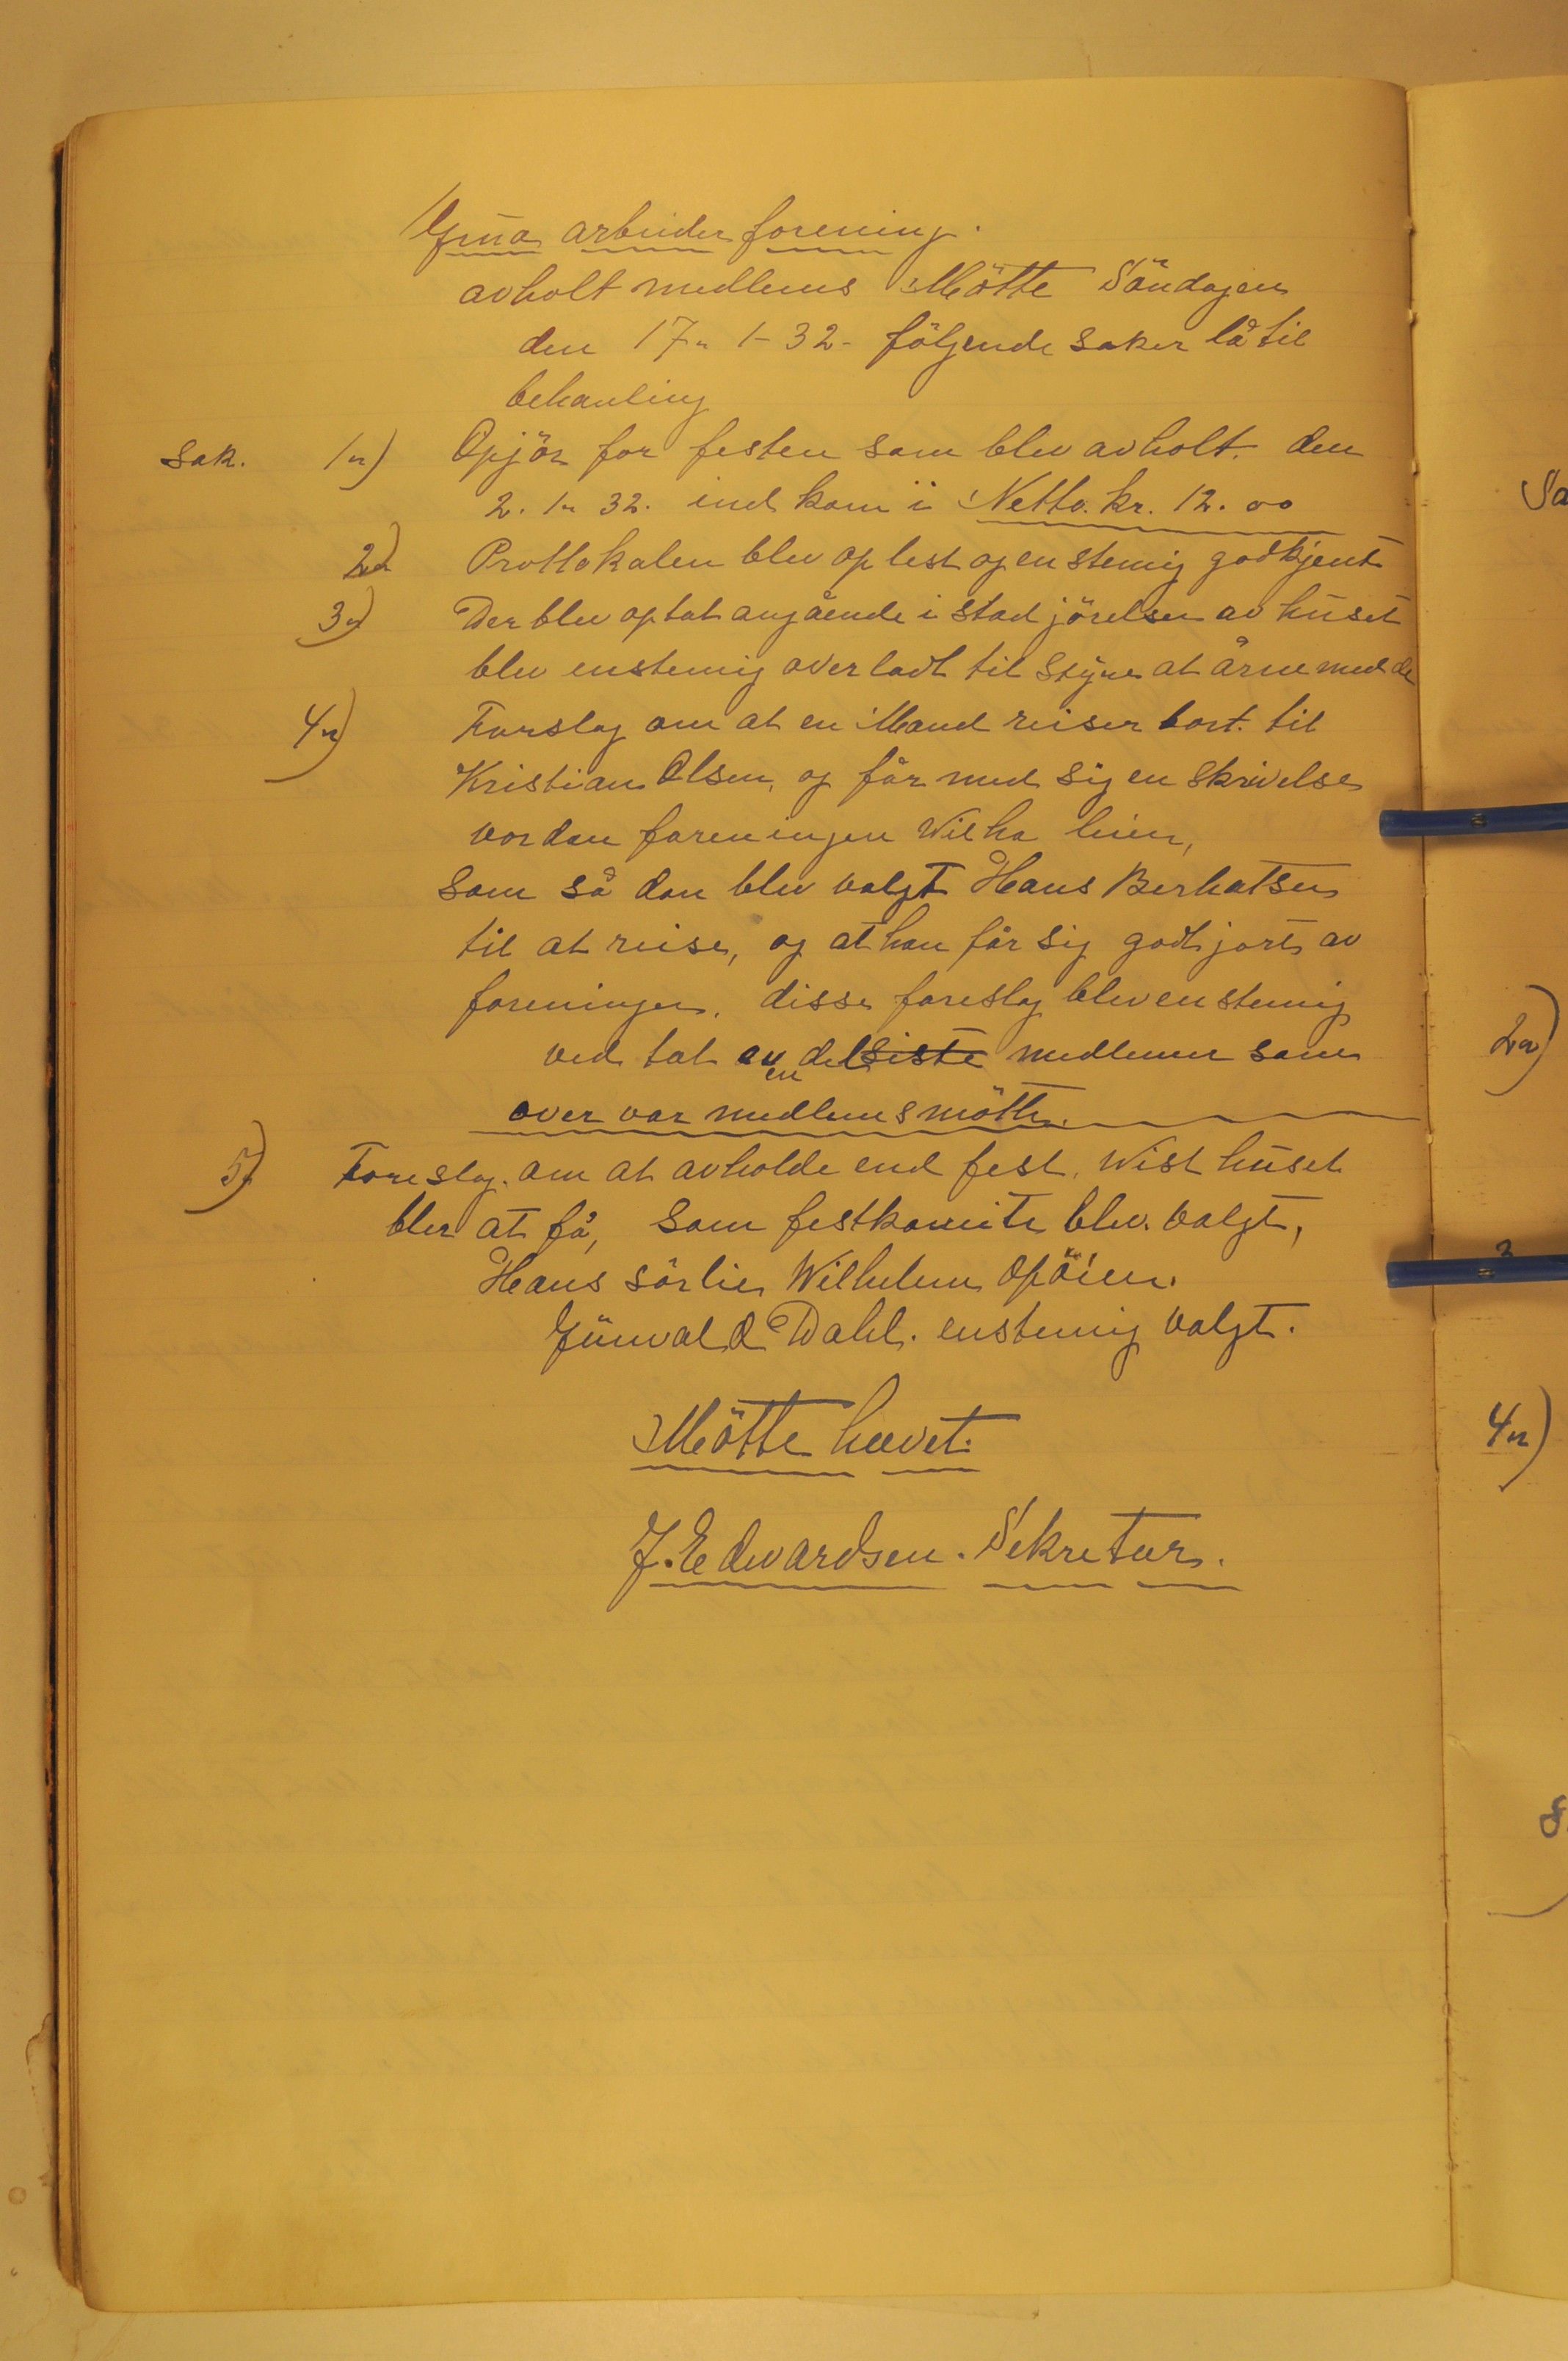 arbeider forening.
avholt medlems Mötte Söndagen
den 17- 1-32- fölgende saker lå til
behanling
Sak. 1) Opjör for festen som blev avholt. den
2. 1- 32. ind kom i Netto. kr. 12.00
2) Prottokalen blev op lest og en stemig godkjent
3) Der blev optat angående i stad jörelsen av huset
blev enstemig over ladt til Styre at årne med de
4) Forslag om at en Mand reiser bort. til
Kristian Olsen, og får med sig en skrivelse
vordan foreningen Wil ha leien,
som så dan blev valgt Hans Berhatsen
til at reise, og at han får sig godt jort av
foreningen. disse foreslag blev en stemig
ved tat av en del siste medlemer som
over var medlems mötte.
5) Foreslag. om at avholde end fest. Wist huset
bler at få, som festkomite blev. valgt,
Hans sörlie Wilhelm Opöien.
Junvald Dahl. enstemig valgt.
Mötte hævet.
J. Edwardsen. Sekretær.
Sa
2)
4)
8.